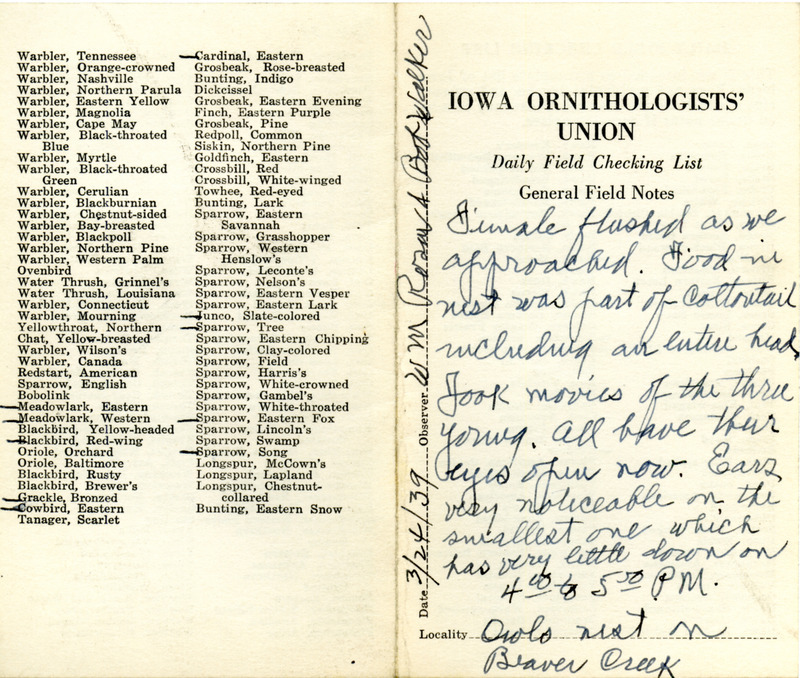 Warbler, Tennessee
Warbler, Orange-crowned
Warbler, Nashville
Warbler, Northern Parula
Warbler, Eastern Yellow
Warbler, Magnolia
Warbler, Cape May
Warbler, Black-throated
Blue
Warbler, Myrtle
Warbler, Black-throated
Green
Warbler, Cerulian
Warbler, Blackburnian
Warbler, Chestnut-sided
Warbler, Bay-breasted
Warbler, Blackpoll
Warbler, Northern Pine
Warbler, Western Palm
Ovenbird
Water Thrush, Grinnel's
Water Thrush, Louisiana
Warbler, Connecticut
Warbler, Mourning
Yellowthroat, Northern
Chat, Yellow-breasted
Warbler, Wilson's
Warbler, Canada
Redstart, American
Sparrow, English
Bobolink
Meadowlark, Eastern
Meadowlark, Western
Blackbird, Yellow-headed
Blackbird, Red-wing
Oriole, Orchard
Oriole, Baltimore
Blackbird, Rusty
Blackbird, Brewer's
Grackle, Bronzed
Cowbird, Eastern
Tanager, Scarlet
Cardinal, Eastern
Grosbeak, Rose-breasted
Bunting, Indigo
Dickcissel
Grosbeak, Eastern Evening
Finch, Eastern Purple
Grosbeak, Pine
Redpoll, Common
Siskin, Northern Pine
Goldfinch, Eastern
Crossbill, Red
Crossbill, White-winged
Towhee, Red-eyed
Bunting, Lark
Sparrow, Eastern
Savannah
Sparrow, Grasshopper
Sparrow, Western
Henslow's
Sparrow, Leconte's
Sparrow, Nelson's
Sparrow, Eastern Vesper
Sparrow, Eastern Lark
Junco, Slate-colored
Sparrow, Tree
Sparrow, Eastern Chipping
Sparrow, Clay-colored
Sparrow, Field
Sparrow, Harris's
Sparrow, White-crowned
Sparrow, Gambel's
Sparrow, White-throated
Sparrow, Eastern Fox
Sparrow, Lincoln's
Sparrow, Swamp
Sparrow, Song
Longspur, McCown's
Longspur, Lapland
Longspur, Chestnut-
collared
Bunting, Eastern Snow
Date 3/24/39 Observer W M Rosen & Bob Walker
IOWA ORNITHOLOGISTS'
UNION
Daily Field Checking List
General Field Notes
Female flushed as we
approached. Food in
nest was part of cottontail
including an entire head.
Took movies of the three
young. All have their
eyes open now. Ears
very noticeable on the
smallest one which
has very little down on
4 00 to 5 00 P.M.
Locality Owls nest on
Beaver Creek